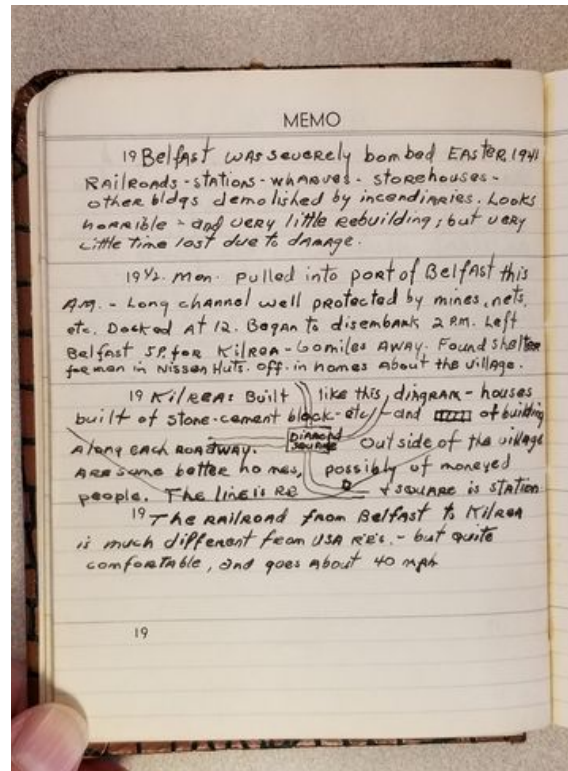 MEMO
19 Belfast was severely bombed Easter, 1941
Railroads - stations - wharves - storehouses -
other bldgs demolished by incendiaries. Looks
horrible - and very little rebuilding; but very
little time lost due to damage.
19 1/2. Mon. Pulled into port of Belfast this
A.M. - Long channel well protected by mines, nets,
etc. Docked at 12. Began to disembark 2 P.M. Left
Belfast 5P. for Kilrea - 60 miles away. Found shelter
for men in Nissen Huts. Off. in homes about the village.
19 Kilrea: Built like this, diagram - houses
built of stone-cement block-etc/- and of building
along each roadway. Diamond Square Outside of the village
are some better homes, possibly of moneyed
people. The line is RE + square is station
19 The railroad from Belfast to Kilrea
is much different from USA RR's. - but quite
comfortable, and goes about 40 mph
19